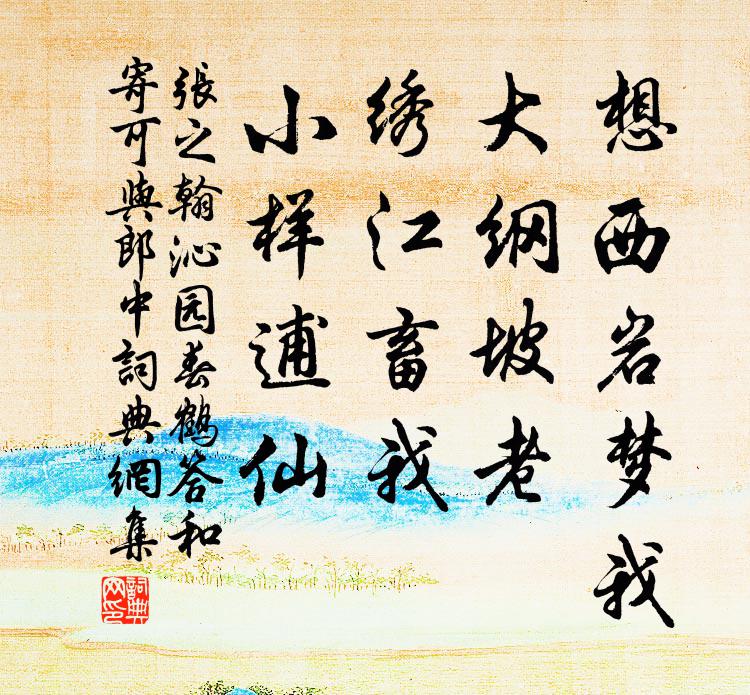 想西岩梦我
大纲坡老
绣江畜我
小样逋仙
張之翰沁园春鶴答和
寄可與郎中詞典網集
詞典网印